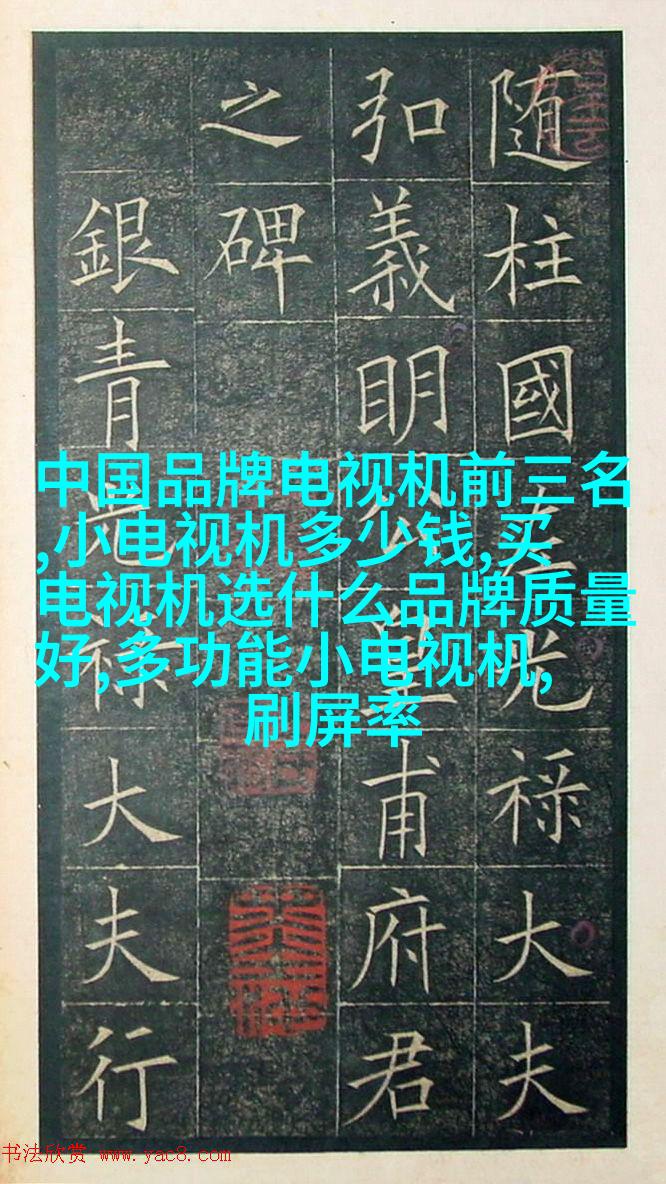 随柱國左光禄大夫
弘義明公皇甫府君
之碑
銀青光禄大夫行
中国品牌电视机前三名
,小电视机多少钱,买
电视机选什么品牌质量
好,多功能小电视机,
刷屏率
书法欣赏 www.yac8.com